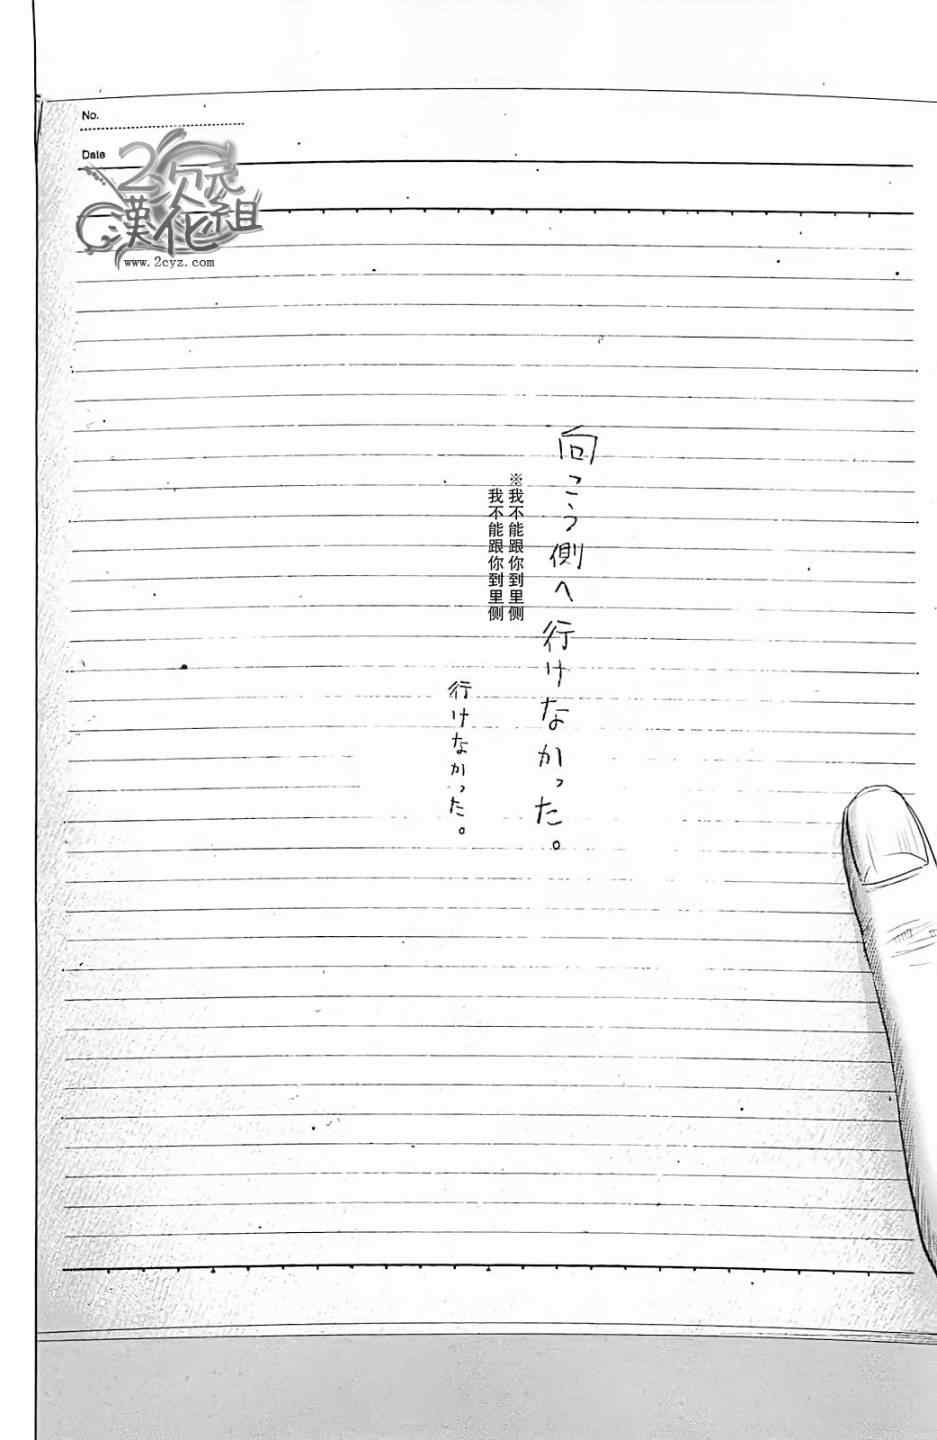 No.
Date
2次元
漢化組
www.2cyz.com
向こう側へ行けなかった。
※我不能跟你到里侧
我不能跟你到里侧
行けなかった。